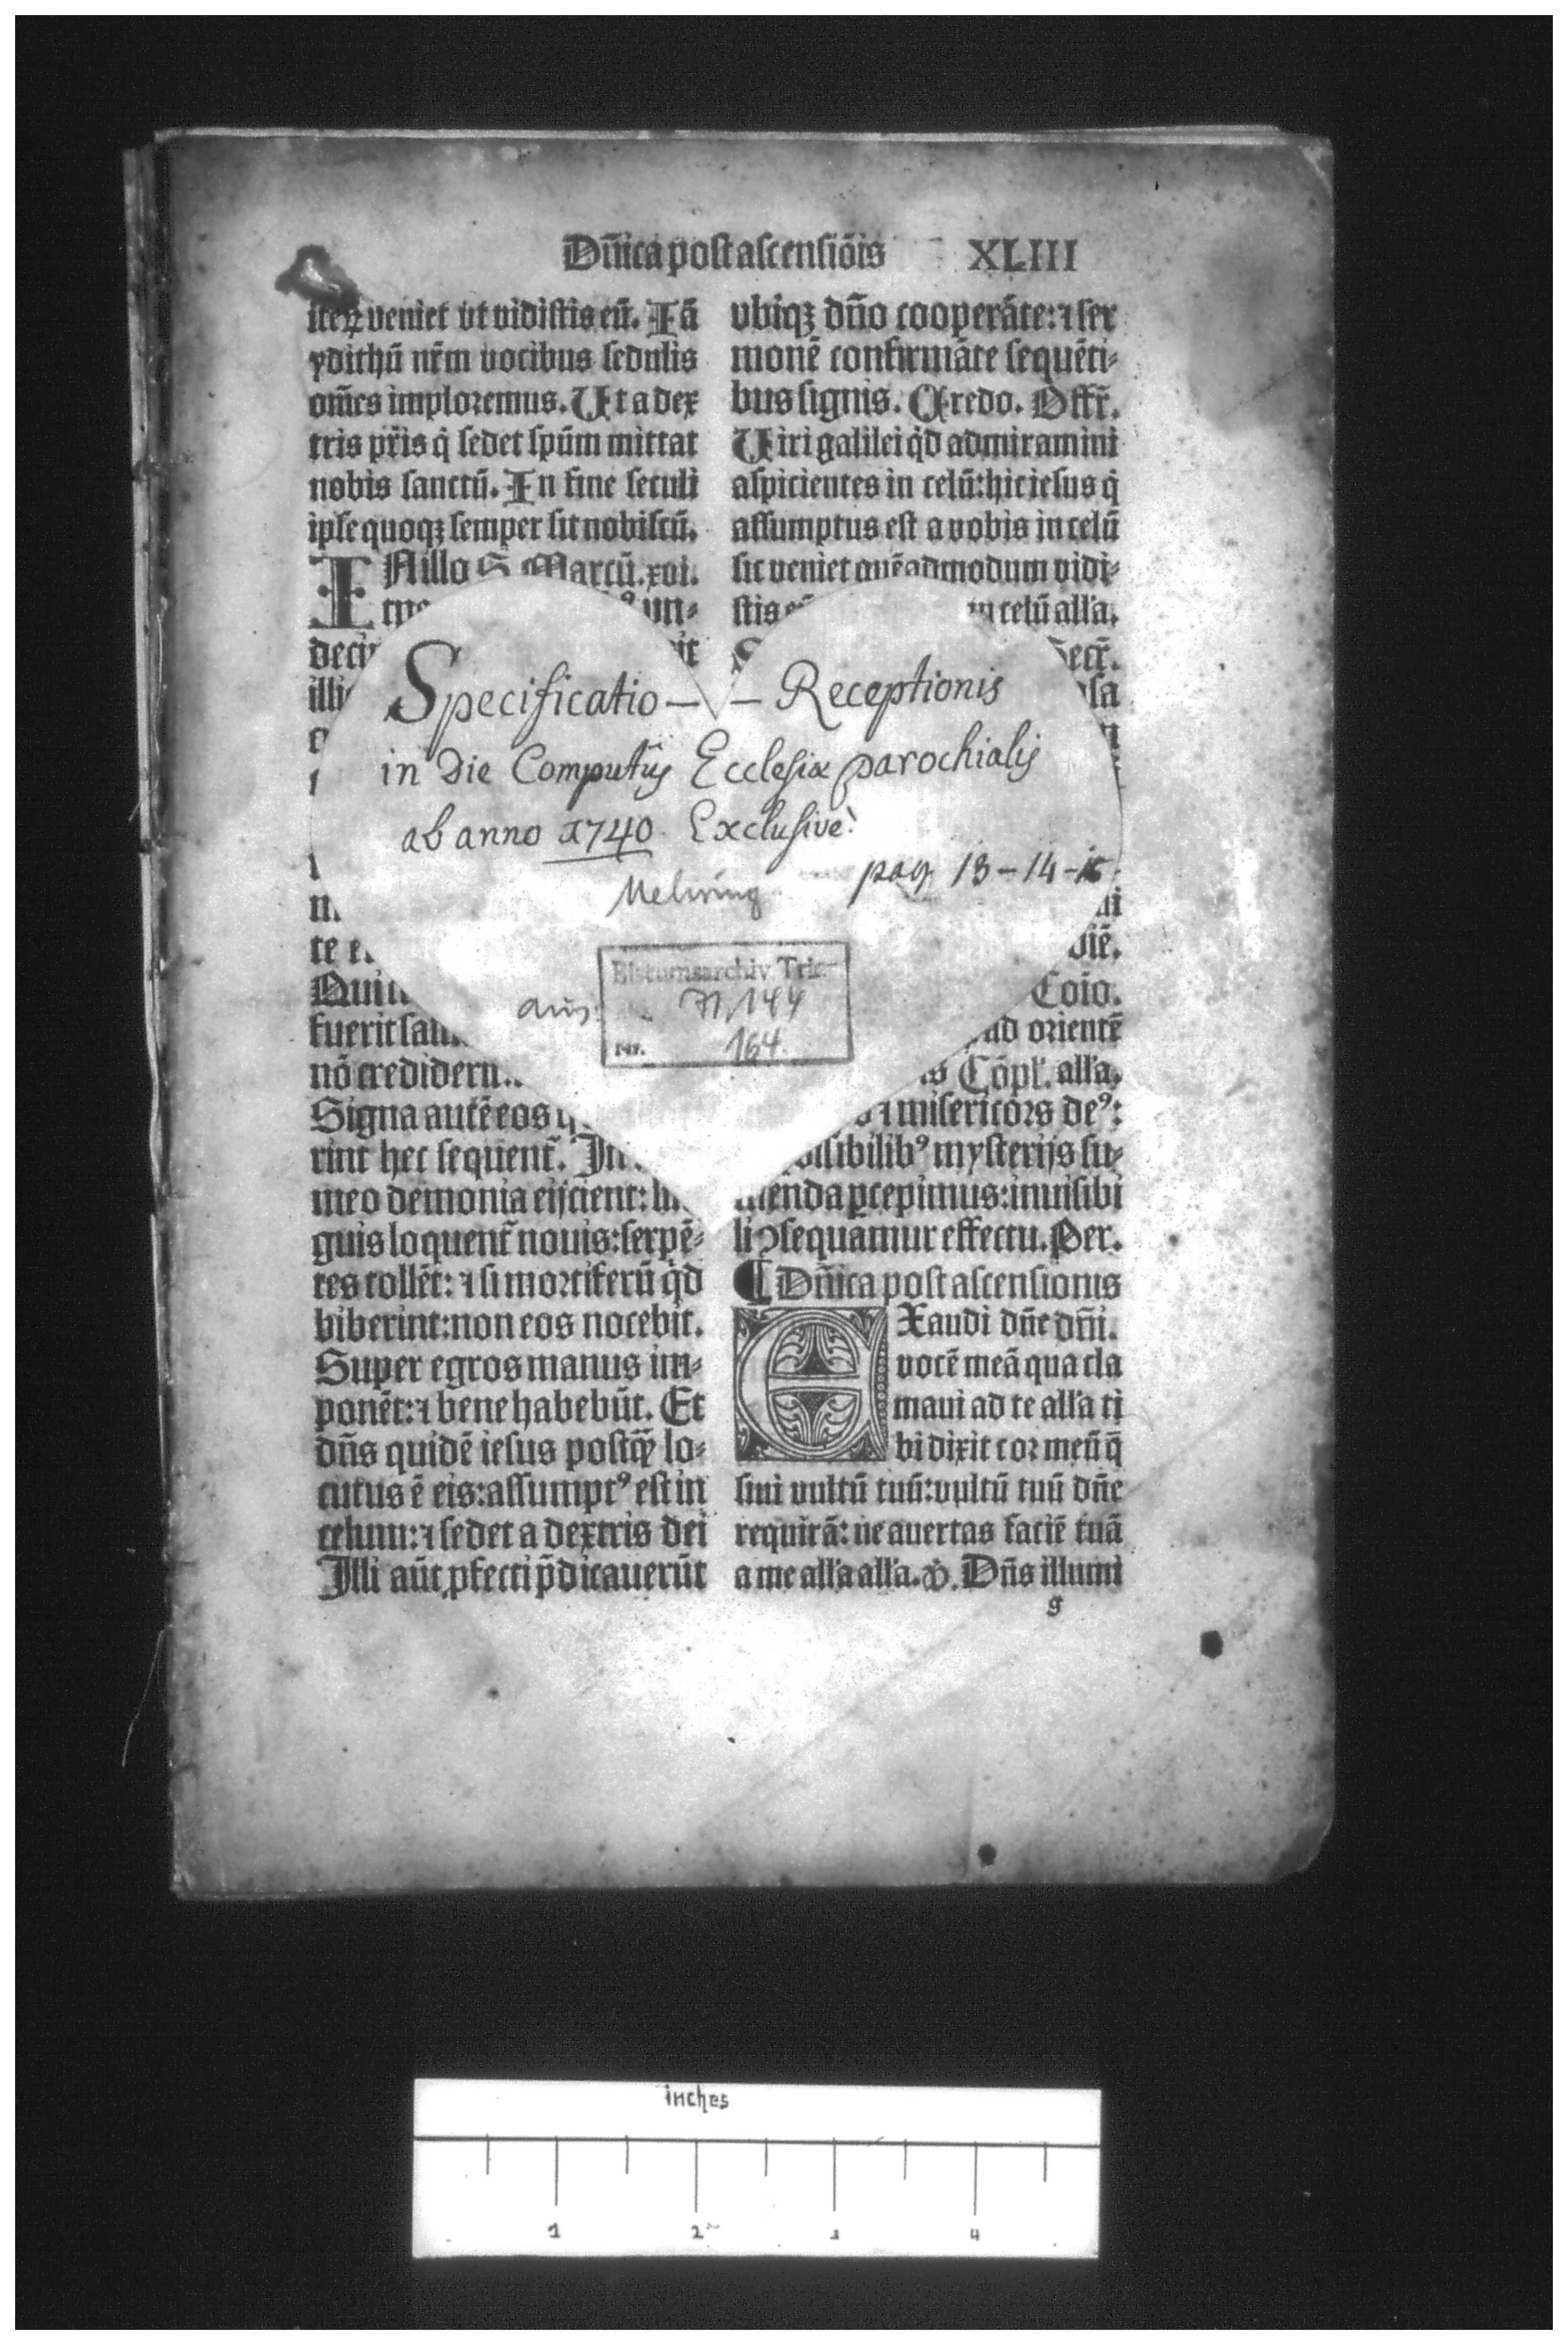 Dn̄ica post ascensiōis XLIII
iteȝ veniet vt vidistis eū. Iā
ꝛdithū nr̄m vocibus sedulis
om̄es imploremus. Ut a dex
tris pr̄is q̇ sedet spūm mittat
nobis sanctū. In fine seculi
ipse quoqȝ semper sit nobiscū.
INillo Marcū. xvi.
un-
deci
illi
te
Qui
fuerit sal
nō crediderū
Signa autē eos
rint hec sequent̄. In
meo demonia eijcient: li
guis loquent̄ nouis: serpē-
tes tollēt: ⁊ si mortiferū qd̄
biberint: non eos nocebit.
Super egros manus im-
ponēt: ⁊ bene habebūt. Et
dn̄s quidē iesus postqȝ̄ lo-
cutus ē eis: assumptꝰ est in
celum: ⁊ sedet a dextris dei
Illi aūt ꝓfecti p̄dicauerūt
vbiqȝ dn̄o cooperāte: ⁊ ser
monē confirmāte sequēti-
bus signis. Credo. Offr̄.
Uiri galilei qd̄ admiramini
aspicientes in celū: hic iesus q̇
assumptus est a vobis in celū
sic veniet quēadmodum vidi-
stis eū in celū alľa.
Secr̄.
diē.
Coio.
ad orientē
Cōpľ. alľa.
⁊ misericors deꝰ:
visibilibꝰ mysterijs su-
menda ꝑcepimus: inuisibi
li ꝯsequamur effectu. Per.
¶ Dn̄ica post ascensionis
EXaudi dn̄e dn̄i.
vocē meā qua cla
maui ad te alľa ti
bi dixit cor meū q̄
siui vultū tuū: vultū tuū dn̄e
requirā: ne auertas faciē tuā
a me alľa alľa. ℣. Dn̄s illumi
g
Specificatio — — Receptionis
in Die Computus Ecclesiæ parochialis
ab anno 1740 Exclusivè.
pag 13 - 14 - 15
Mehring
Bistumsarchiv Trier
aus 71,144
Nr. 164
inches
1 2 3 4